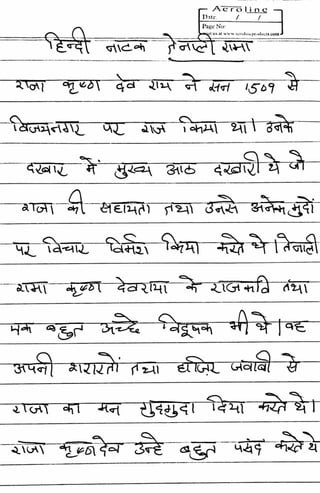 Aeroline
Date / /
Page No
हिन्दी नाटक तेनाली रामा
राजा कृष्ण देव राय ने सन 1509 से
विजयनगर पर राज किया था। उनके
दरबार में मुख्य आठ दरबारी थे जो
राजा की सहायता तथा उनसे अनेक मुद्दों
पर विचार विर्मश किया करते थे। तेनाली
रामा कृष्ण देवराया के राजकवि तथा
एक बहुत अच्छे विदूषक भी थे। वह
अपनी शरारतों तथा हाज़िर जवाबी से
राजा का मन गुदगुदा दिया करते थे।
राजा कृष्णदेव उन्हे बहुत पसंद करते थे